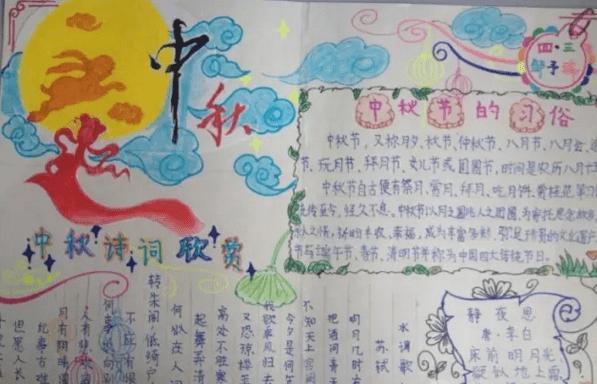 中秋
四·三
中秋节的习俗
中秋节,又称月夕、秋节、仲秋节、八月节、八月会、
节、玩月节、拜月节、女儿节或团圆节,时间是农历八月十
中秋节自古便有祭月、赏月、拜月、吃月饼、赏桂花
流传至今,经久不息。中秋节以月之圆兆人之团圆,为寄托思念故乡,
亲人之情,祈盼丰收、幸福,成为丰富多彩、弥足珍贵的文化遗产
节与端午节、春节、清明节并称为中国四大传统节日。
中秋诗词欣赏
水调歌
苏轼
明月几时有
把酒问青天
不知天上宫阙
今夕是何年
我欲乘风归去
又恐琼楼玉
高处不胜寒
起舞弄清
何似在人间
转朱阁,低绮户
不应有恨
何事
人有悲欢
月有阴晴圆
此事古难
但愿人长
静夜思
唐·李白
床前明月光
疑似地上霜